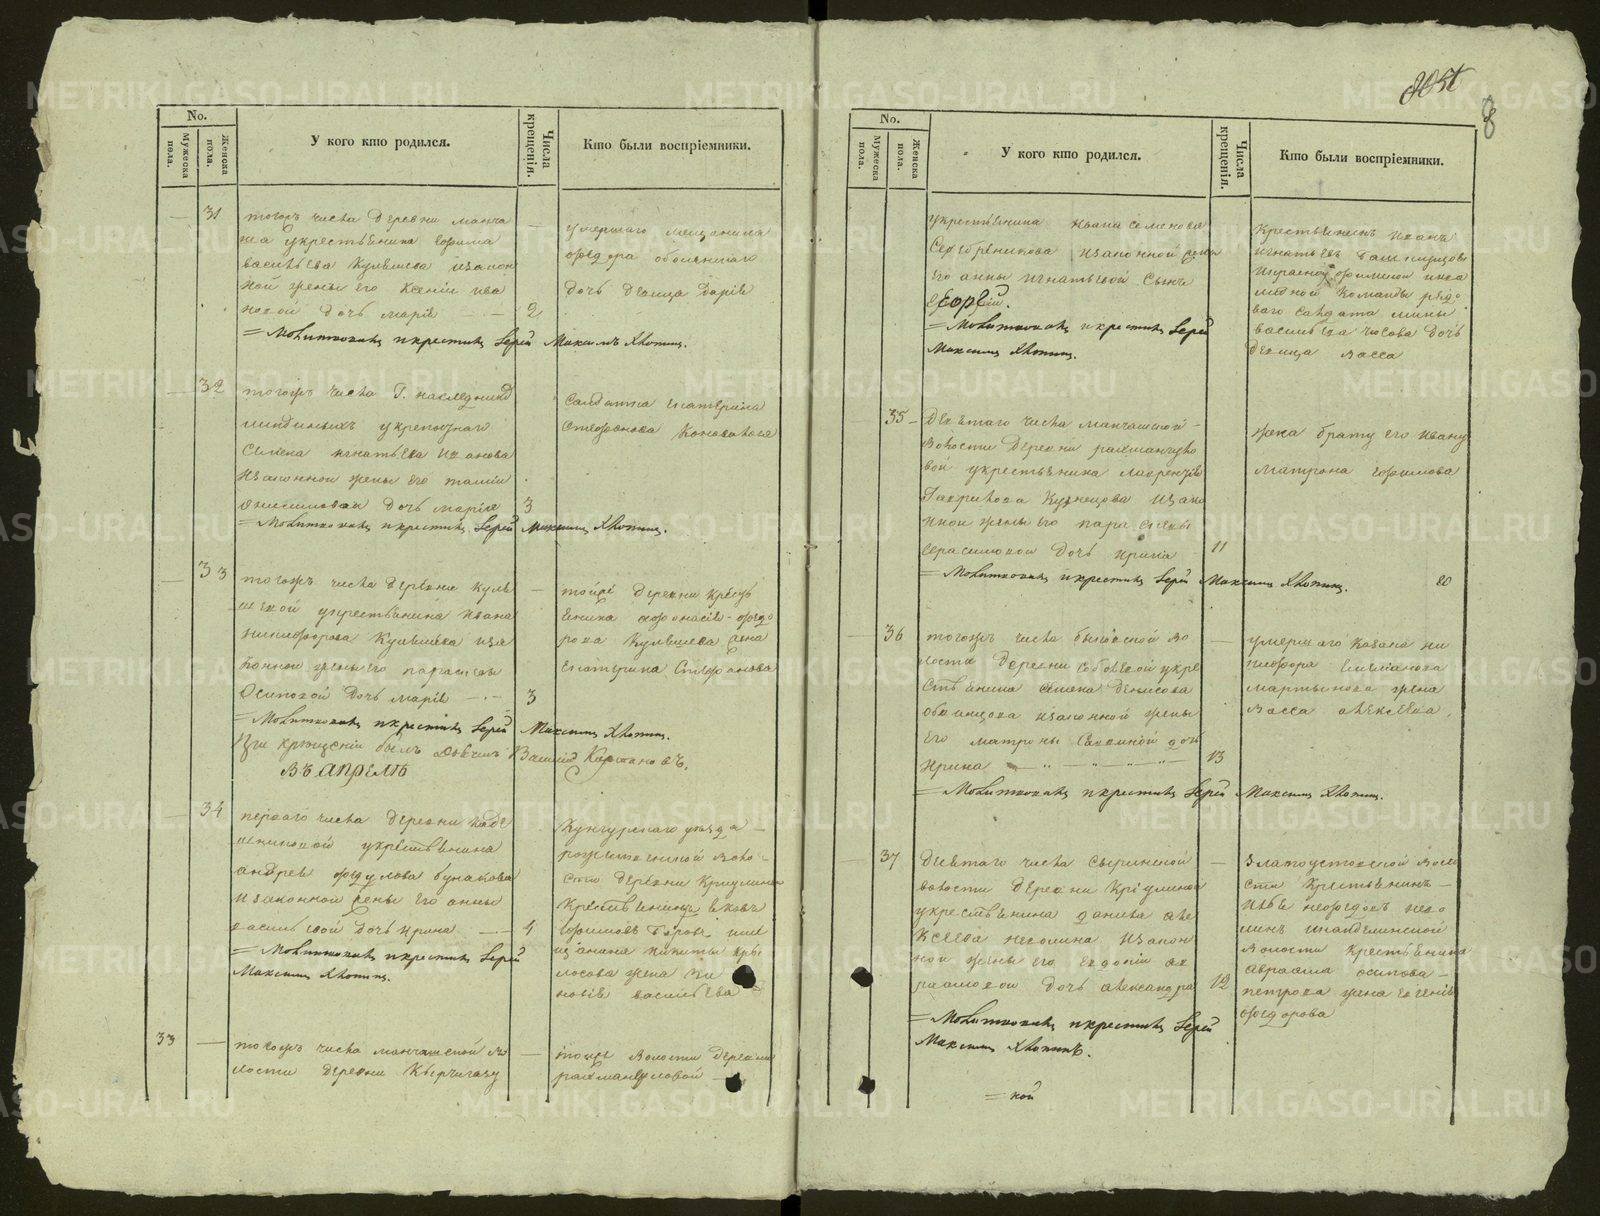 No.
Мужеска пола.
Женска пола.
У кого кто родился.
Числа крещенія.
Кто были воспріемники.
31
тогожъ числа деревни манча
жа укрестьянина Ефима
васильева Кулешева изакон
ной жены его Ксеніи ива
новой дочь марія 2
умершаго мещанина
федора
дочь девица дарія
Молитвовалъ икрестилъ Іерей Максимъ Хлопинъ.
32
тогожъ числа Г. наследниц
укрепостнаго
Семена игнатьева иванова
изаконной жены его
онисимовой дочь марія 3
салдатка екатерина
Стефанова Коновалова
Молитвовалъ икрестилъ Іерей Максимъ Хлопинъ.
33
тогожъ числа деревни куле
шевой укрестьянина ивана
никифорова Кулешева иза
конной жены его параскевы
Осиповой дочь марія 3
тойже деревни крест
янина афонасія федо
рова Кулешева жена
екатерина Стефанова
Молитвовалъ икрестилъ Іерей Максимъ Хлопинъ.
При крещеніи былъ Василій
Въ апрелѣ
34
перваго числа деревни
укрестьянина
андрея федулова бунакова
изаконной жены его анны
васильевой дочь ирина 4
Кунгурскаго уезда
рожественской воло
сти деревни
Крестьянинъ яковъ
ефимовъ
никиты
жена зи
новія васильева
Молитвовалъ икрестилъ Іерей
Максимъ Хлопинъ.
33
тогожъ числа манчажской во
лости деревни
тойже волости деревни
рахмангуловой
No.
Мужеска пола.
Женска пола.
У кого кто родился.
Числа крещенія.
Кто были воспріемники.
8
укрестьянина ивана семенова
Серебреникова изаконной жены
его анны игнатьевой Сынъ
Георгій.
Молитвовалъ икрестилъ Іерей
Максимъ Хлопинъ.
Крестьянинъ иванъ
игнатьевъ
инва
лидной команды рядо
ваго салдата
васильева часова дочь
девица васса
35
девятаго числа манчажской
волости деревни рахмангуло
вой укрестьянина лаврентія
Гаврилова Кузнецова изако
нной жены его параскевы
герасимовой дочь ирина 11
жена брату его ивану
матрона ефимова
Молитвовалъ икрестилъ Іерей Максимъ Хлопинъ.
20
36
тогожъ числа быковской во
лости деревни собовской укре
стьянина семена денисова
изаконной жены
его матроны саввиной дочь
ирина 13
умершаго казака ни
кифора емельянова
мартынова жена
васса алексеева.
Молитвовалъ икрестилъ Іерей Максимъ Хлопинъ.
37
девятаго числа сыринской
волости деревни
укрестьянина данила але
ксеева неволина изакон
ной жены его евдокіи ав
раамовой дочь александра 12
златоустовской воло
сти крестьянинъ
нево
линъ
волости крестьянина
авраама осипова
петрова жена евгенія
федорова
Молитвовалъ икрестилъ Іерей
Максимъ Хлопинъ.
кой
METRIKI.GASO-URAL.RU